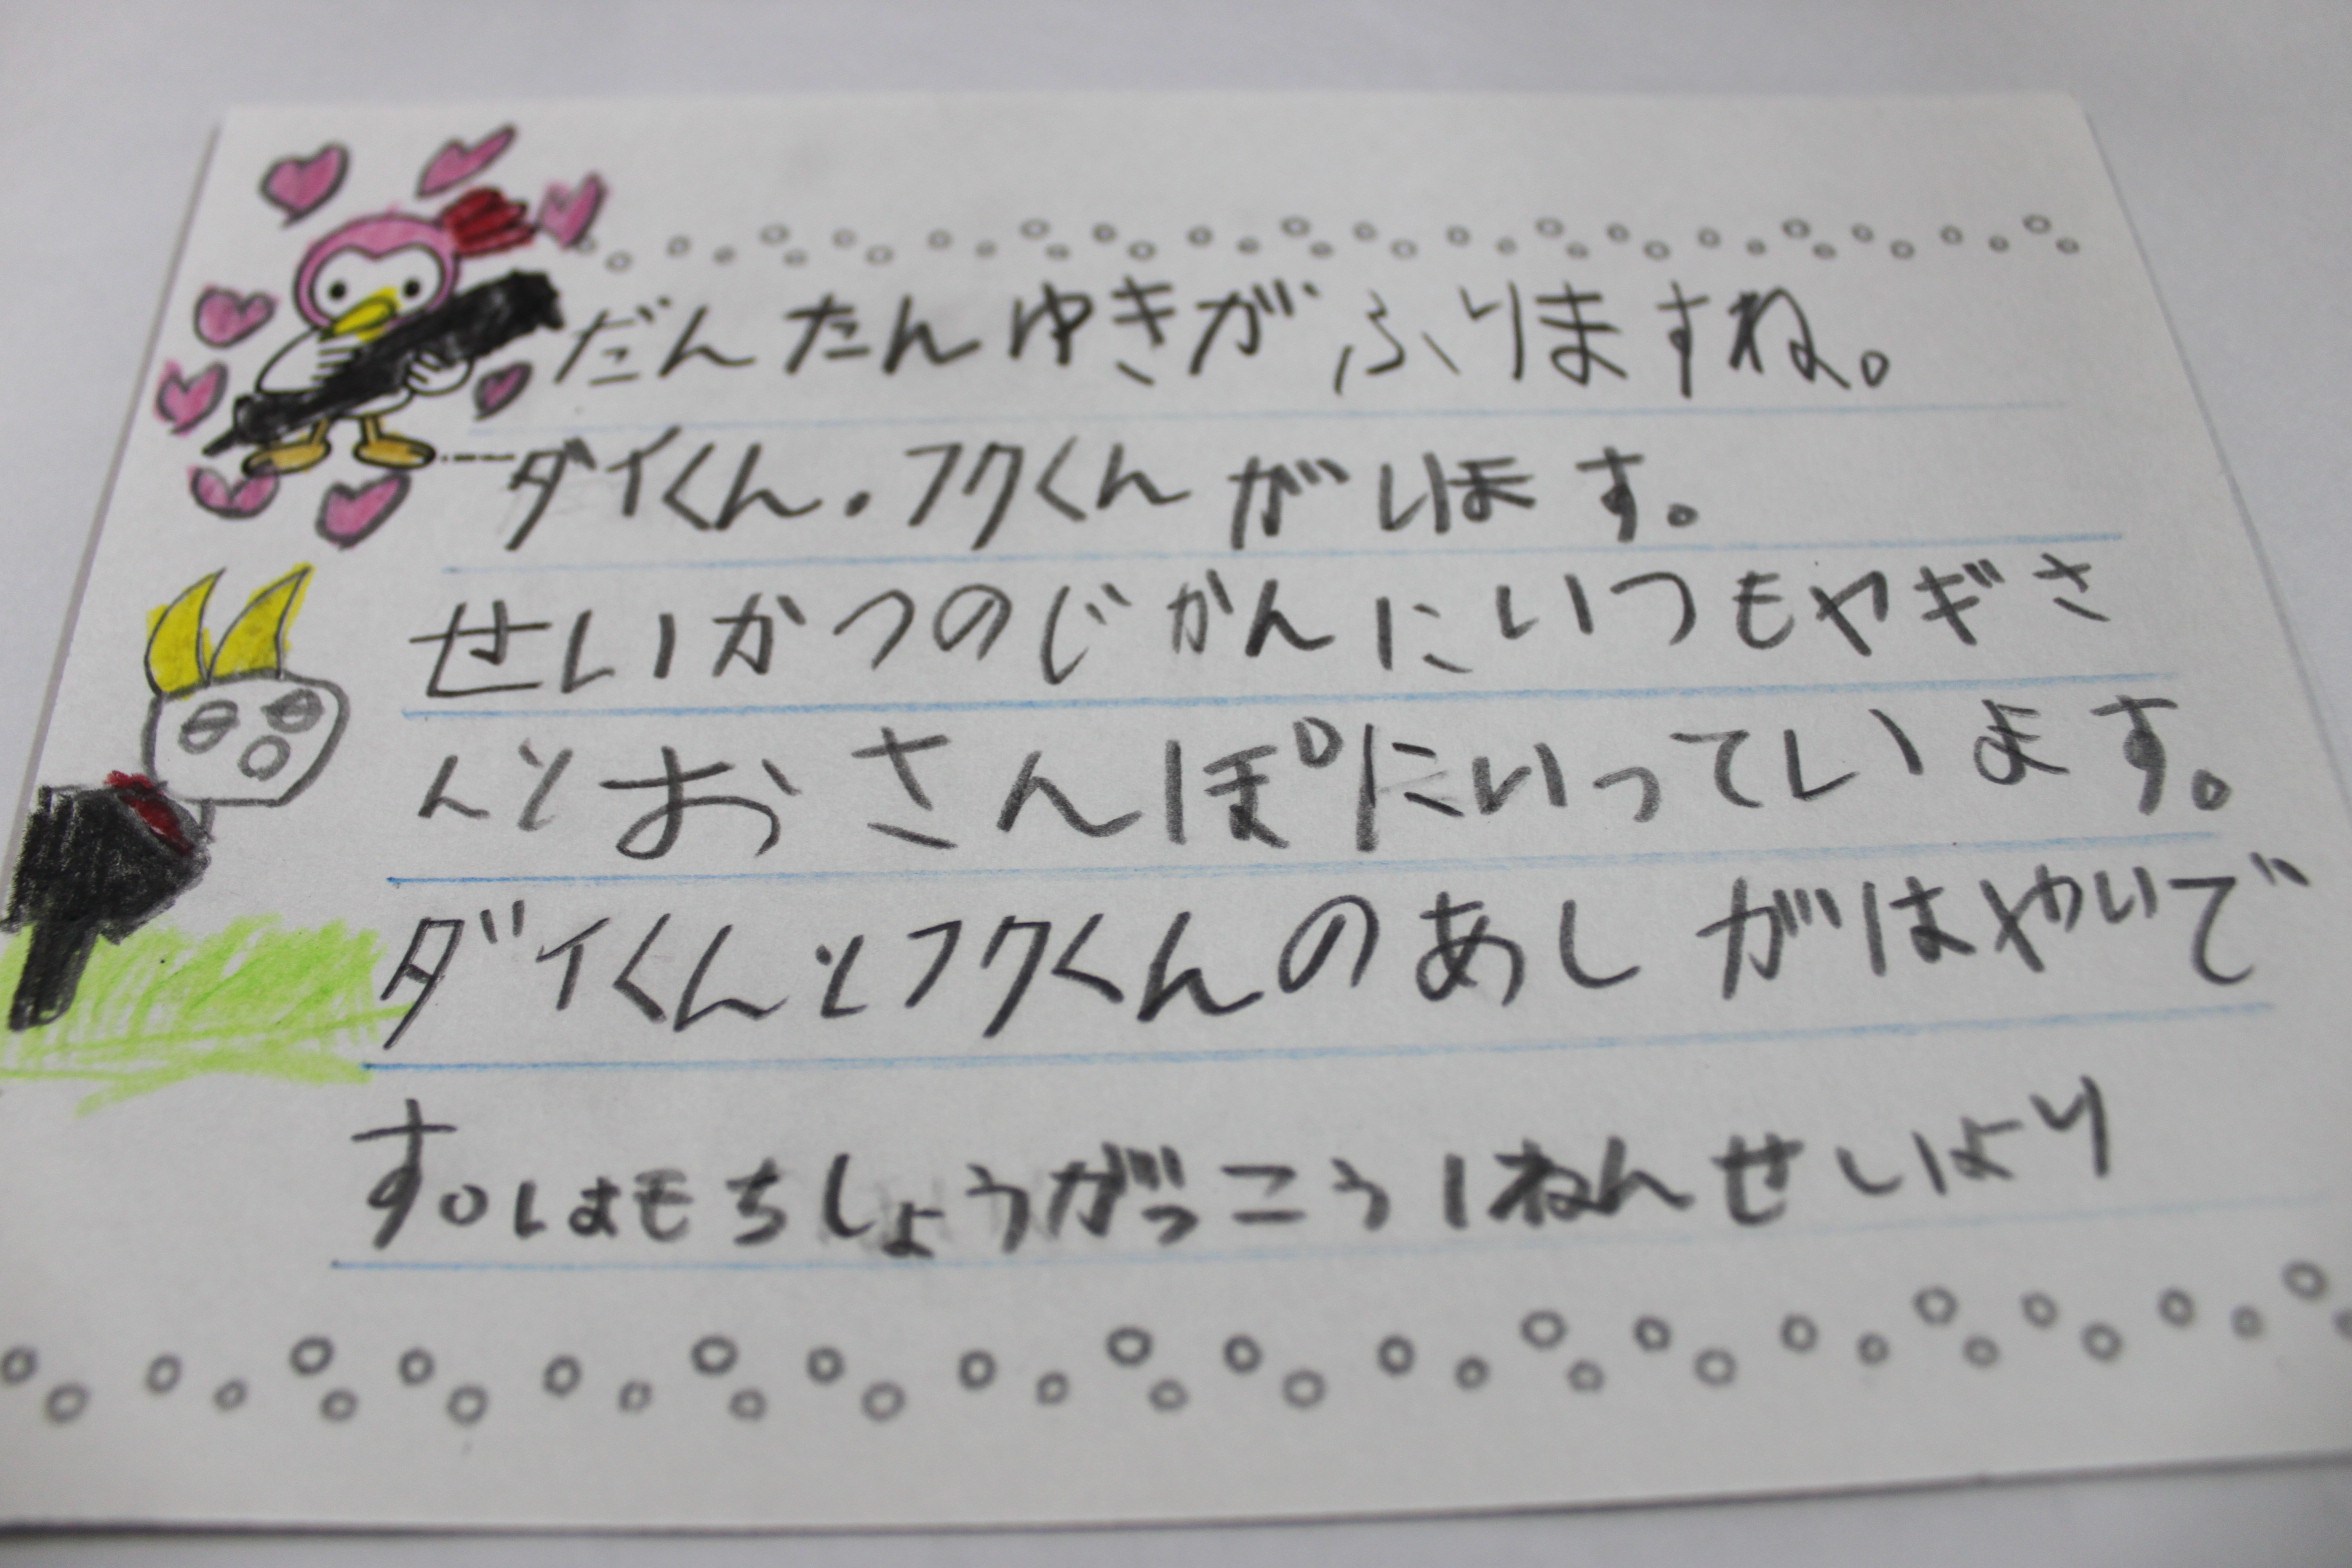 だんたんゆきがふりますね。
ダイくん・フクくんがいます。
せいかつのじかんにいつもヤギさ
んとおさんぽにいっています。
ダイくんとフクくんのあしがはやいで
す。しもちしょうがっこう1ねんせいより